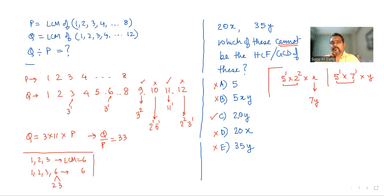 P = LCM of (1, 2, 3, 4, .... 8)
Q = LCM of (1, 2, 3, 4, ... 12)
Q ÷ P = ?
P → 1 2 3 4 ... 8
Q → 1 2 3 4 5 6 .. 8 9 10 11 12
3¹ 3¹ 3² 2¹5¹ 11¹ 2² 3¹
Q = 3×11×P → Q/P = 33
1, 2, 3 → LCM = 6
1, 2, 3, 6 → 6
2 3
20x, 35y
Which of these cannot
be the HCF/GCD of
these?
A) 5
B) 5xy
C) 20y
D) 20x
E) 35y
5¹ × 2² × x 5¹ × 7¹ × y
7y